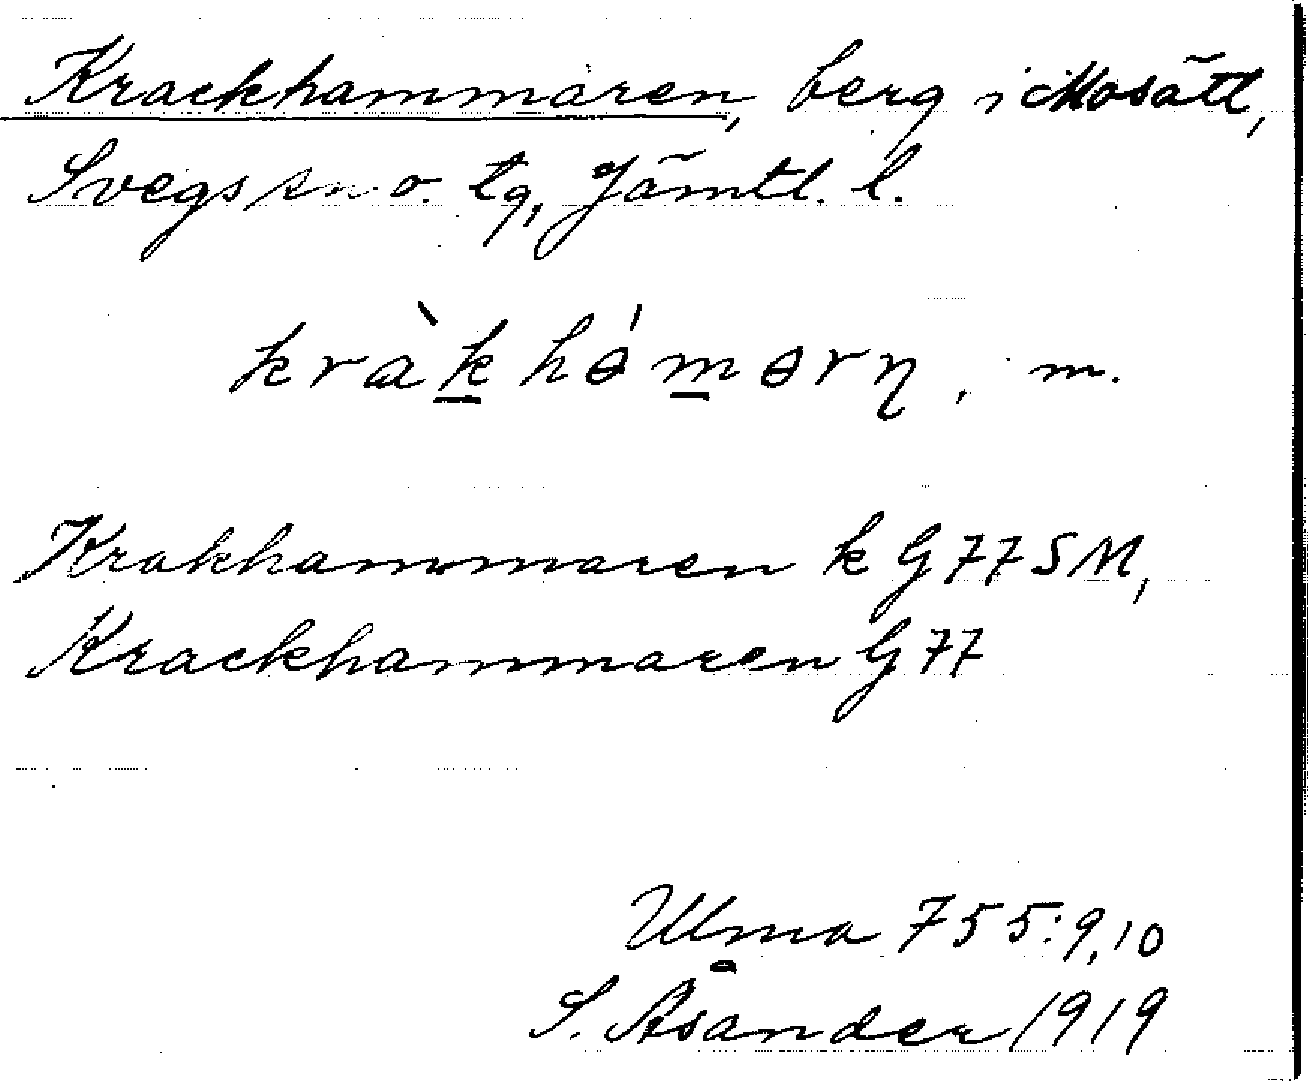 Krackhammaren, berg i Mosätt,
Svegs sn o. tg, Jämtl. l.
kràk hə́mərn, m.
Krakhammaren k G 77 SM,
Krackhammaren G 77
Ulma 755:9,10
S. Åsander 1919